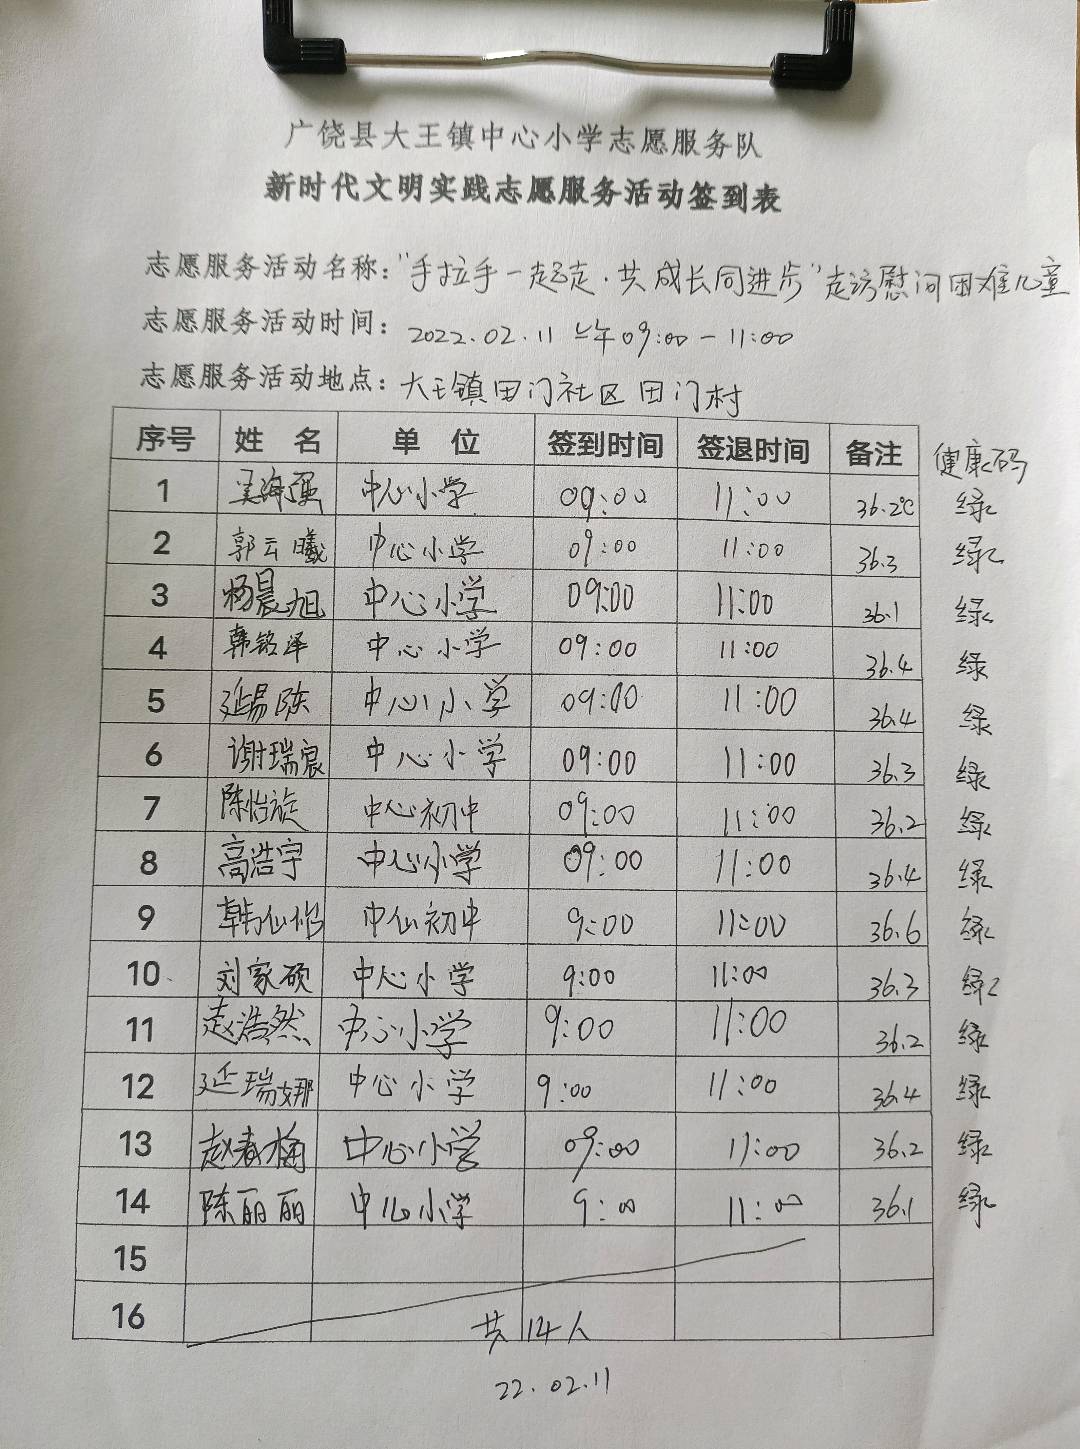 广饶县大王镇中心小学志愿服务队
新时代文明实践志愿服务活动签到表
志愿服务活动名称：“手拉手一起走·共成长同进步”走访慰问困难儿童
志愿服务活动时间：2022.02.11 上午09:00－11:00
志愿服务活动地点：大王镇田门社区田门村
序号 姓 名 单 位 签到时间 签退时间 备注 健康码
1 海强 中心小学 09:00 11:00 36.2℃ 绿
2 郭云曦 中心小学 09:00 11:00 36.3 绿
3 杨晨旭 中心小学 09:00 11:00 36.1 绿
4 韩铭泽 中心小学 09:00 11:00 36.4 绿
5 延易陈 中心小学 09:00 11:00 36.4 绿
6 谢瑞宸 中心小学 09:00 11:00 36.3 绿
7 陈怡旋 中心初中 09:00 11:00 36.2 绿
8 高浩宇 中心小学 09:00 11:00 36.4 绿
9 韩心怡 中心初中 9:00 11:00 36.6 绿
10 刘家硕 中心小学 9:00 11:00 36.3 绿
11 赵浩然 中心小学 9:00 11:00 36.2 绿
12 延瑞娜 中心小学 9:00 11:00 36.4 绿
13 赵春梅 中心小学 09:00 11:00 36.2 绿
14 陈丽丽 中心小学 9:00 11:00 36.1 绿
15
16 共14人
22.02.11